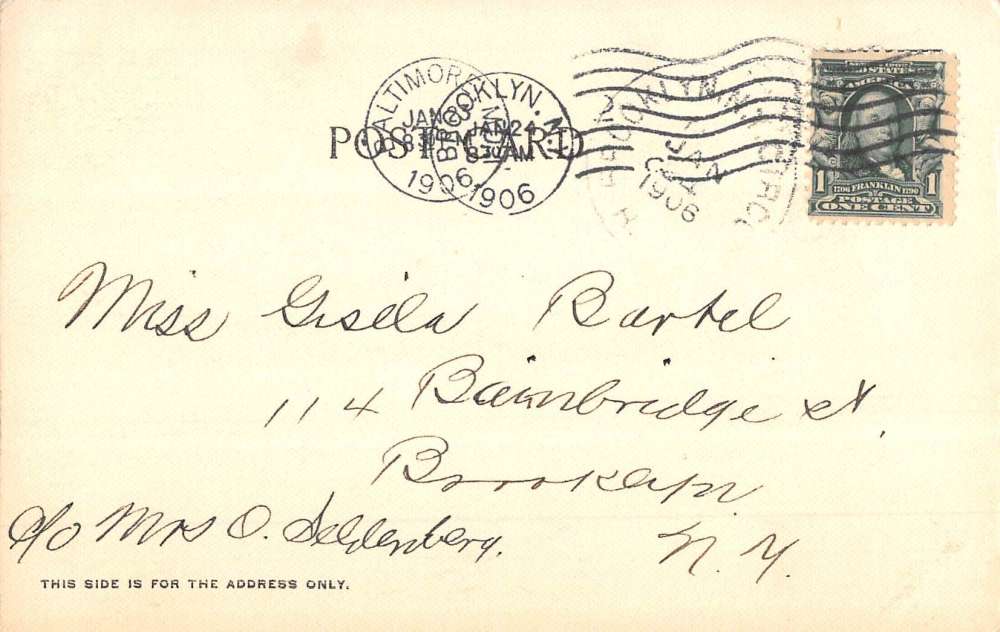 BALTIMORE
JAN 23
1906
BROOKLYN, N.Y.
JAN 24
8 30 AM
1906
BROOKLYN, N.Y.
JAN
1906
POST CARD
UNITED STATES
AMERICA
1 1706 FRANKLIN 1790 1
POSTAGE
ONE CENT
Miss Gisela Bartel
114 Bainbridge st,
Brooklyn
N.Y.
c/o Mrs O.
THIS SIDE IS FOR THE ADDRESS ONLY.